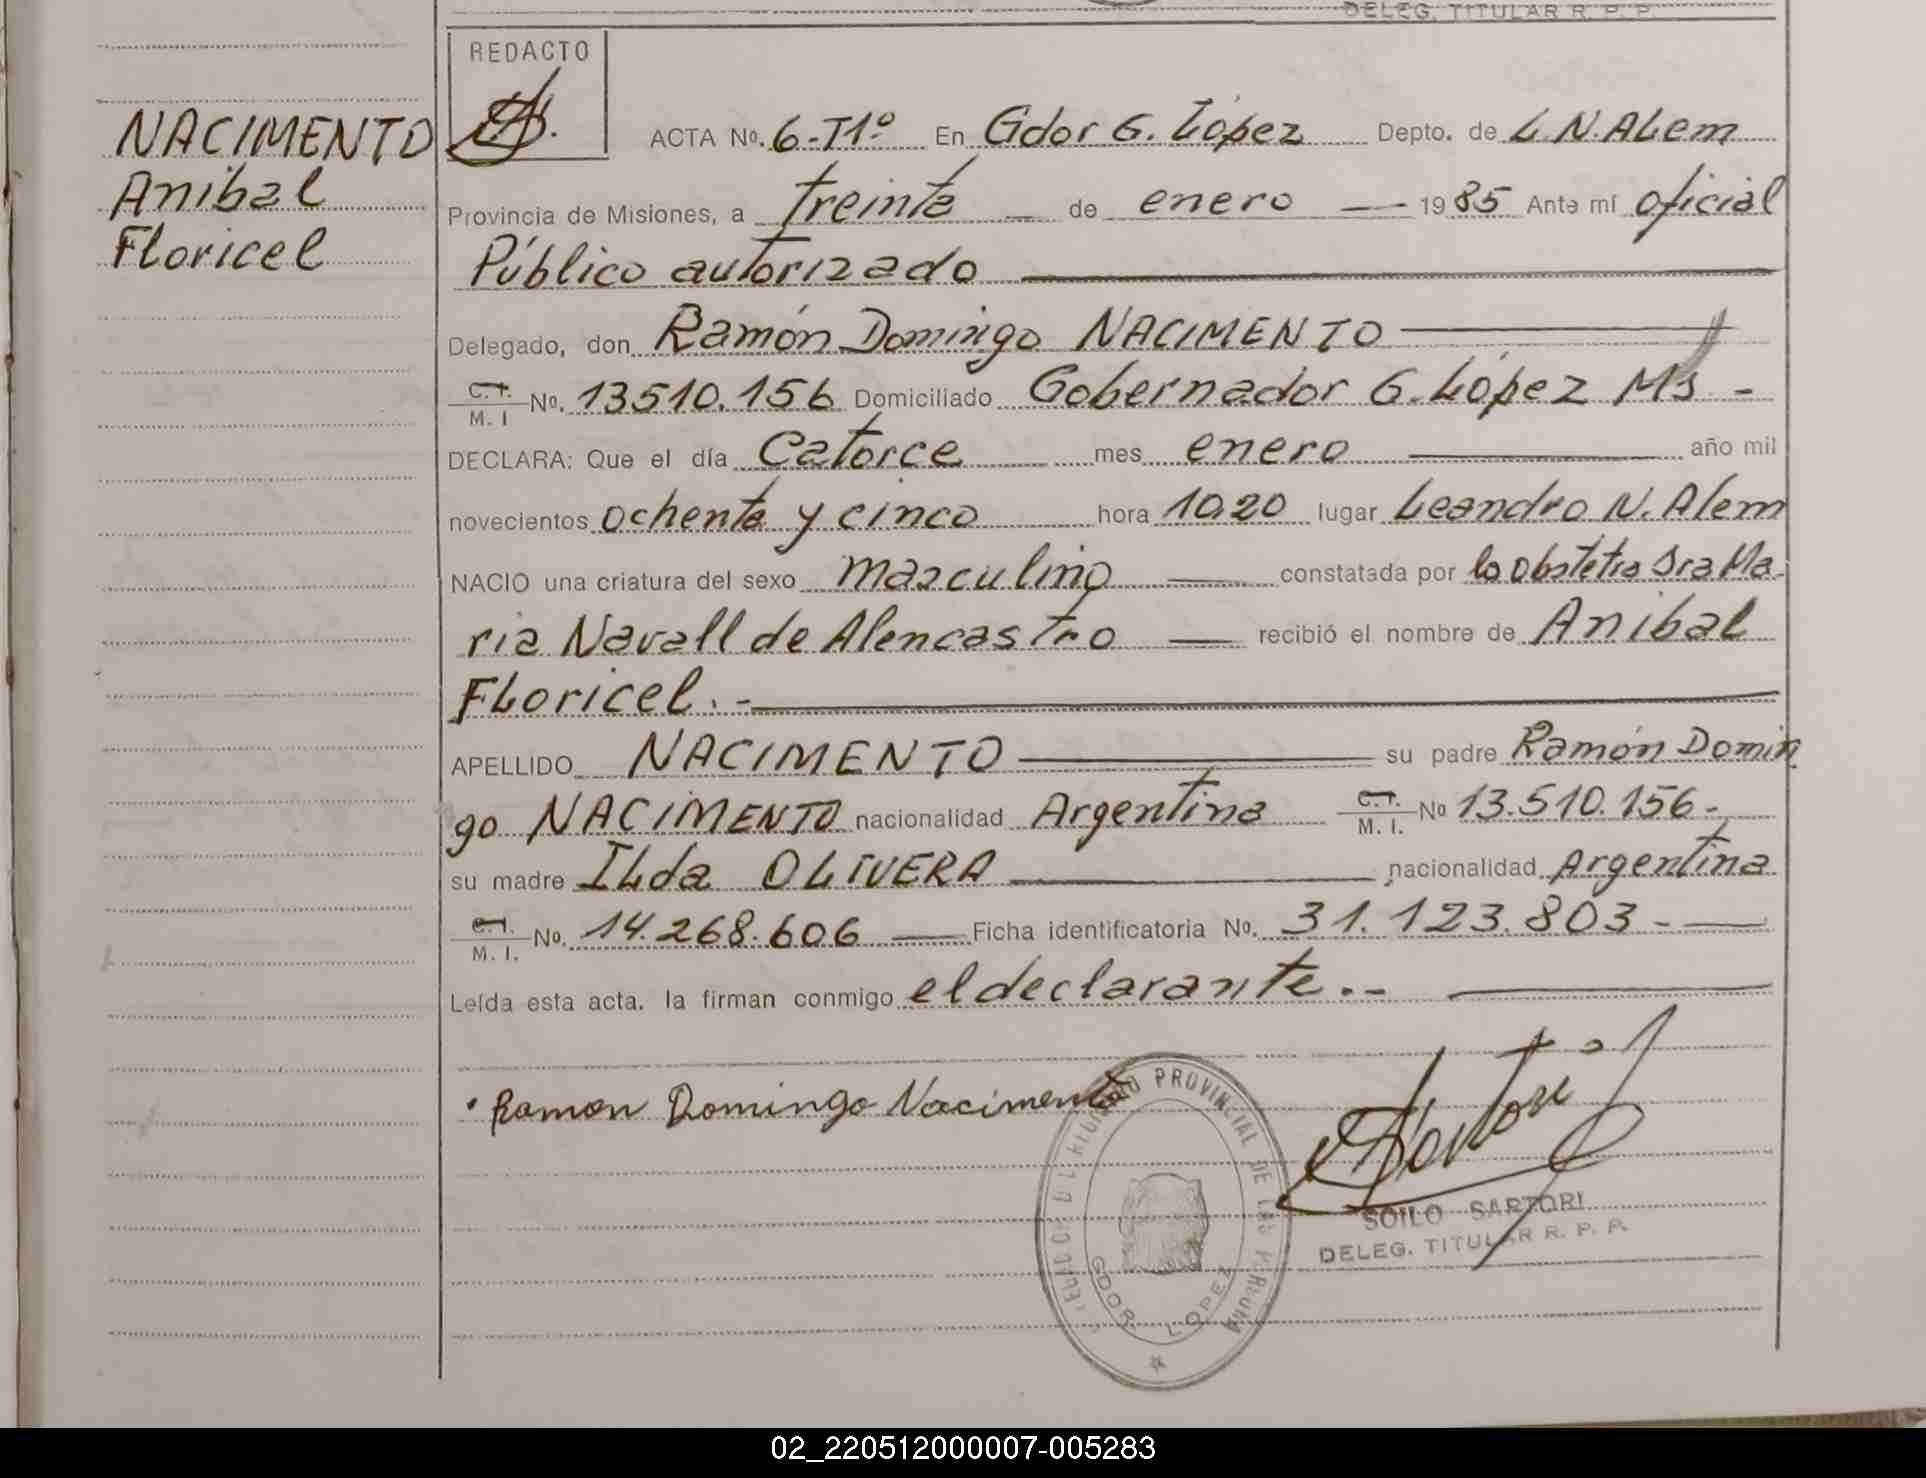 DELEG. TITULAR R. P. P.
REDACTO
NACIMENTO
Anibal
Floricel
ACTA No. 6-T1º En Gdor G. López Depto. de L.N. ALem
Provincia de Misiones, a treinta de enero 1985 Ante mí oficial
Público autorizado
Delegado, don Ramón Domingo NACIMENTO
C.I. M. I No. 13510.156 Domiciliado Gobernador G. López Ms -
DECLARA: Que el día Catorce mes enero año mil
novecientos ochenta y cinco hora 10,20 lugar Leandro N. Alem
NACIO una criatura del sexo masculino constatada por la Obstetra Sra Ma-
ria Navall de Alencastro recibió el nombre de Anibal
FLoricel. -
APELLIDO NACIMENTO su padre Ramón Domin
go NACIMENTO nacionalidad Argentina C.I. M. I. No 13.510.156-
su madre ILda OLIVERA nacionalidad Argentina
C.I. M. I. No. 14.268.606 Ficha identificatoria No. 31.123.803-
Leída esta acta. la firman conmigo el declarante.-
Ramon Domingo Nacimento
REGISTRO PROVINCIAL DE LAS PERSONAS
GDOR. LOPEZ
SOILO SARTORI
DELEG. TITULAR R. P. P.
02_220512000007-005283